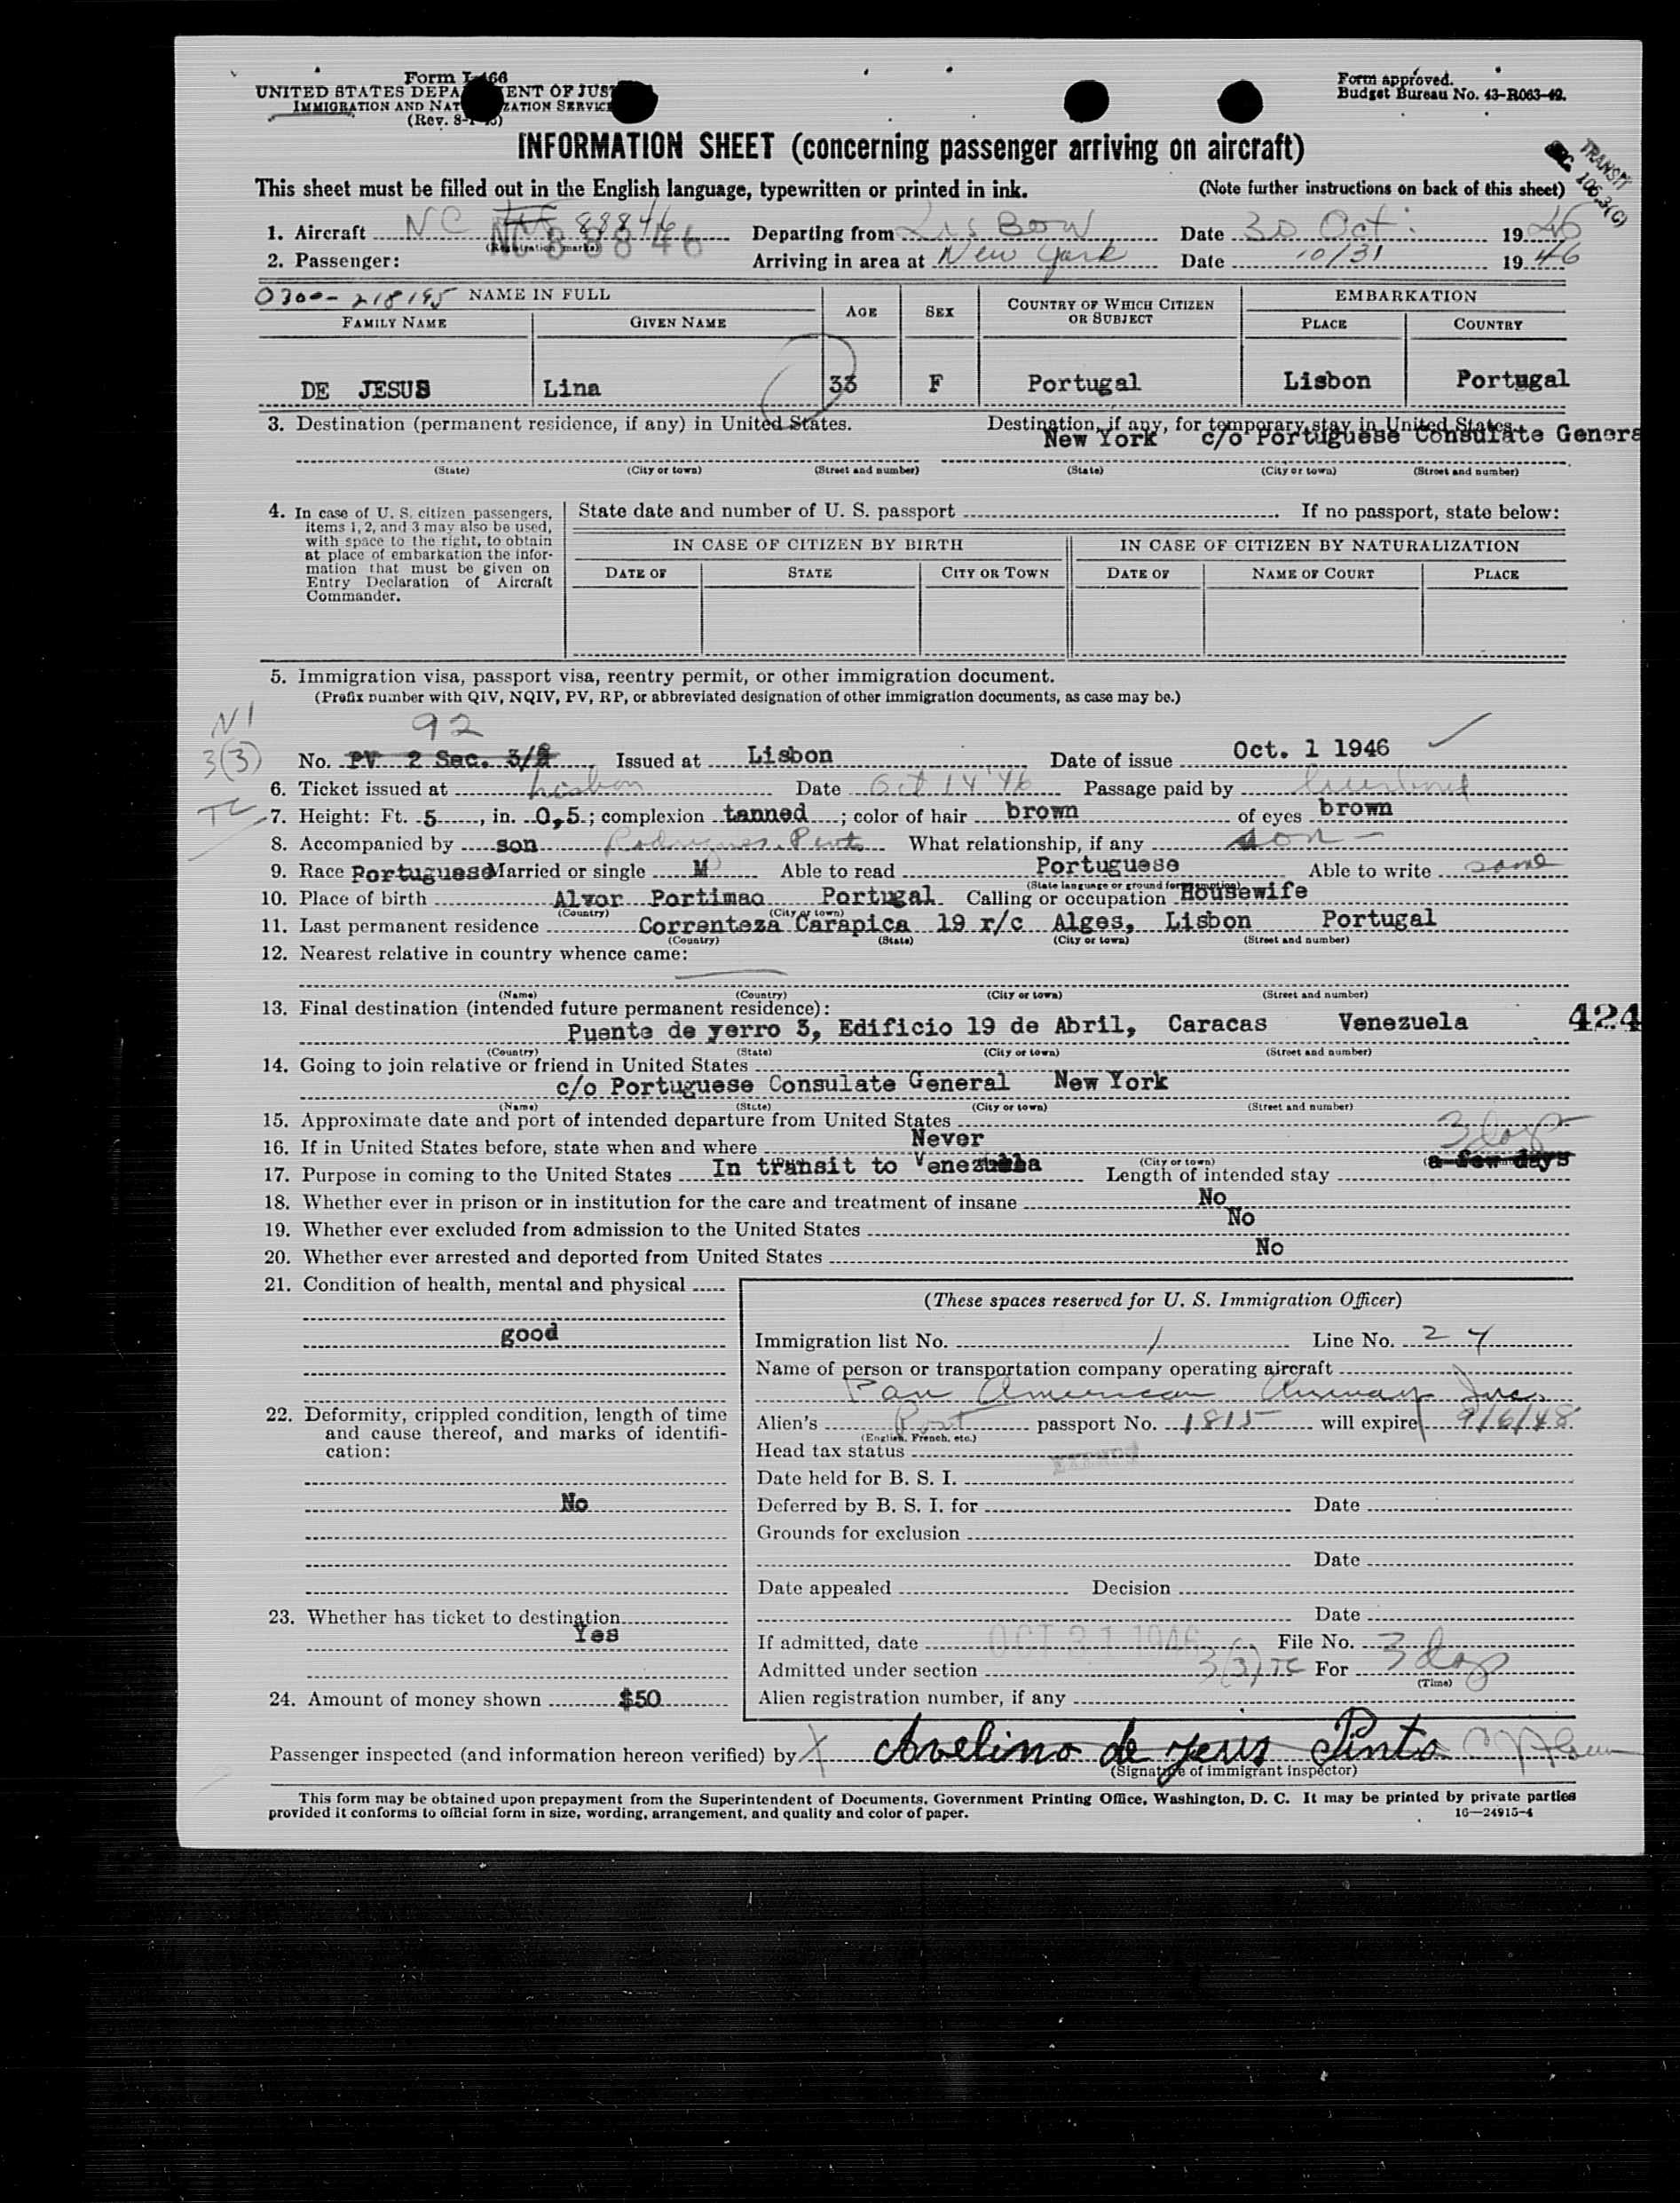 Form I-466
UNITED STATES DEPA ENT OF JUS
IMMIGRATION AND NAT ZATION SERVICE
(Rev. 8-
Form approved.
Budget Bureau No. 43-R063-42.
INFORMATION SHEET (concerning passenger arriving on aircraft)
TRANSIT
106.3(C)
This sheet must be filled out in the English language, typewritten or printed in ink. (Note further instructions on back of this sheet)
1. Aircraft NC 88846 Departing from LisBon Date 30 Oct. 1946
NC 88846
(Registration marks)
2. Passenger: Arriving in area at New York Date 10/31 1946
0300-218195 NAME IN FULL AGE SEX COUNTRY OF WHICH CITIZEN OR SUBJECT EMBARKATION
FAMILY NAME GIVEN NAME PLACE COUNTRY
DE JESUS Lina 33 F Portugal Lisbon Portugal
3. Destination (permanent residence, if any) in United States. Destination, if any, for temporary stay in United States.
New York c/o Portuguese Consulate Genera
(State) (City or town) (Street and number) (State) (City or town) (Street and number)
4. In case of U. S. citizen passengers, items 1, 2, and 3 may also be used, with space to the right, to obtain at place of embarkation the information that must be given on Entry Declaration of Aircraft Commander.
State date and number of U. S. passport If no passport, state below:
IN CASE OF CITIZEN BY BIRTH IN CASE OF CITIZEN BY NATURALIZATION
DATE OF STATE CITY OR TOWN DATE OF NAME OF COURT PLACE
5. Immigration visa, passport visa, reentry permit, or other immigration document.
(Prefix number with QIV, NQIV, PV, RP, or abbreviated designation of other immigration documents, as case may be.)
NI
3(3)
TC
92
No. PV 2 Sec. 3/ Issued at Lisbon Date of issue Oct. 1 1946
6. Ticket issued at Lisbon Date Oct 14 '46 Passage paid by husband
7. Height: Ft. 5, in. 0,5; complexion tanned; color of hair brown of eyes brown
8. Accompanied by son What relationship, if any son
9. Race Portuguese Married or single M Able to read Portuguese Able to write same
(State language or ground for exemption)
10. Place of birth Alvor Portimao Portugal Calling or occupation Housewife
(Country) (City or town)
11. Last permanent residence Correnteza Carapica 19 r/c Alges, Lisbon Portugal
(Country) (State) (City or town) (Street and number)
12. Nearest relative in country whence came:
(Name) (Country) (City or town) (Street and number)
13. Final destination (intended future permanent residence):
Puente de yerro 3, Edificio 19 de Abril, Caracas Venezuela 424
(Country) (State) (City or town) (Street and number)
14. Going to join relative or friend in United States
c/o Portuguese Consulate General New York
(Name) (State) (City or town) (Street and number)
15. Approximate date and port of intended departure from United States
16. If in United States before, state when and where Never
3 days
(City or town)
17. Purpose in coming to the United States In transit to Venezuela Length of intended stay a few days
18. Whether ever in prison or in institution for the care and treatment of insane No
19. Whether ever excluded from admission to the United States No
20. Whether ever arrested and deported from United States No
21. Condition of health, mental and physical
good
22. Deformity, crippled condition, length of time and cause thereof, and marks of identification:
No
23. Whether has ticket to destination
Yes
24. Amount of money shown $50
(These spaces reserved for U. S. Immigration Officer)
Immigration list No. 1 Line No. 24
Name of person or transportation company operating aircraft
Pan American Airways Inc.
Alien's Port passport No. 1815 will expire 9/6/48
(English, French, etc.)
Head tax status
Date held for B. S. I.
Deferred by B. S. I. for Date
Grounds for exclusion
Date
Date appealed Decision
Date
If admitted, date OCT 31 1946 File No. 3
Admitted under section 3(3) TC For 3 days
(Time)
Alien registration number, if any
Passenger inspected (and information hereon verified) by X Avelino de Jesus Pinto
(Signature of immigrant inspector)
This form may be obtained upon prepayment from the Superintendent of Documents, Government Printing Office, Washington, D. C. It may be printed by private parties
provided it conforms to official form in size, wording, arrangement, and quality and color of paper. 16—24915-4